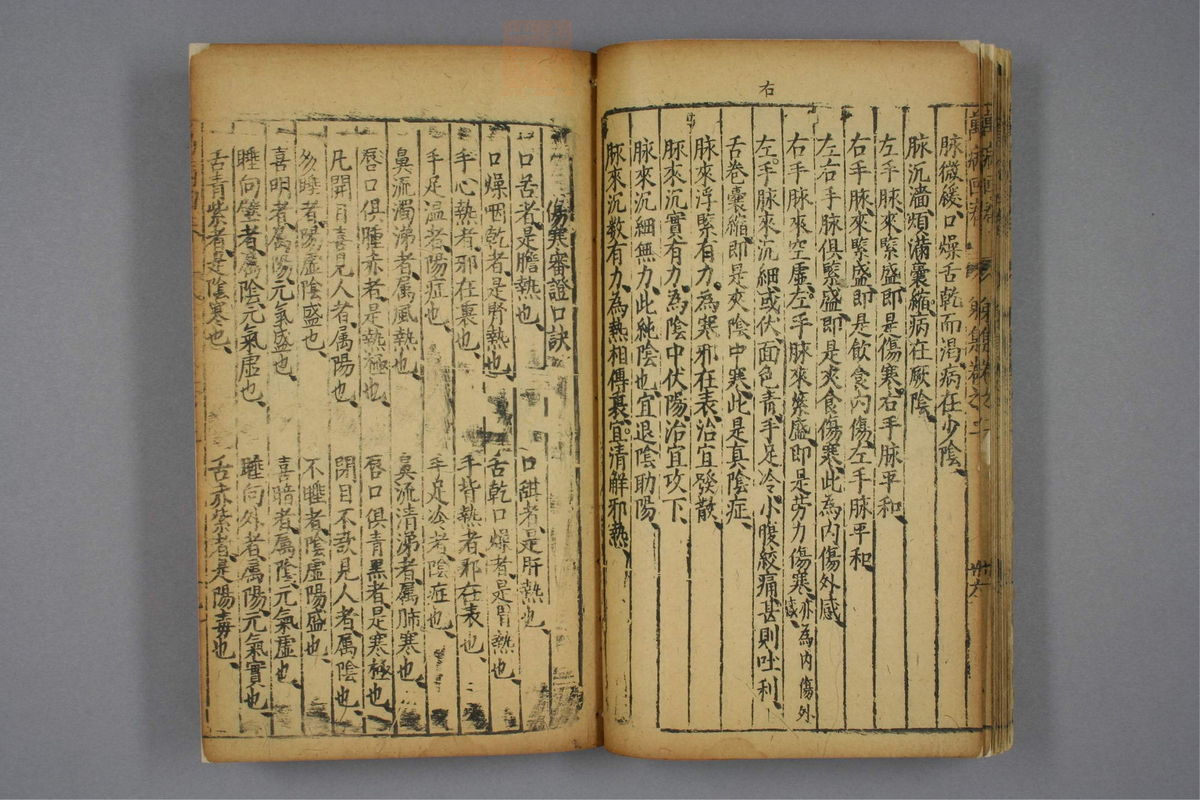 右
脉微緩口燥舌乾而渴病在少陰
脉沉濇煩滿囊縮病在厥陰
左手脉來緊盛即是傷寒右手脉平和
右手脉來緊盛即是飲食內傷左手脉平和
左右手脉俱緊盛即是夾食傷寒此為內傷外感
右手脉來空虛左手脉來緊盛即是劳力傷寒亦為內傷外感
左手脉來沉細或伏面色青手足冷小腹絞痛甚則吐利
舌卷囊縮即是夾陰中寒此是真陰症
脉來浮緊有力為寒邪在表治宜發散
脉來沉實有力為陰中伏陽治宜攻下
脉來沉細無力此純陰也宜退陰助陽
脉來沉数有力為熱相傳裏宜清解邪熱
傷寒審證口訣
口苦者是膽熱也 口䤈者是肝熱也
口燥咽乾者是腎熱也 舌乾口燥者是胃熱也
手心熱者邪在裏也 手背熱者邪在表也
手足温者陽症也 手足冷者陰症也
鼻流濁涕者属風熱也 鼻流清涕者属肺寒也
唇口俱腫赤者是熱極也 唇口俱青黑者是寒極也
凡開目喜見人者属陽也 閉目不欲見人者属陰也
多睡者陽虛陰盛也 不睡者陰虛陽盛也
喜明者属陽元氣盛也 喜暗者属陰元氣虛也
睡向壁者属陰元氣虛也 睡向外者属陽元氣實也
舌青紫者是陰寒也 舌赤紫者是陽毒也